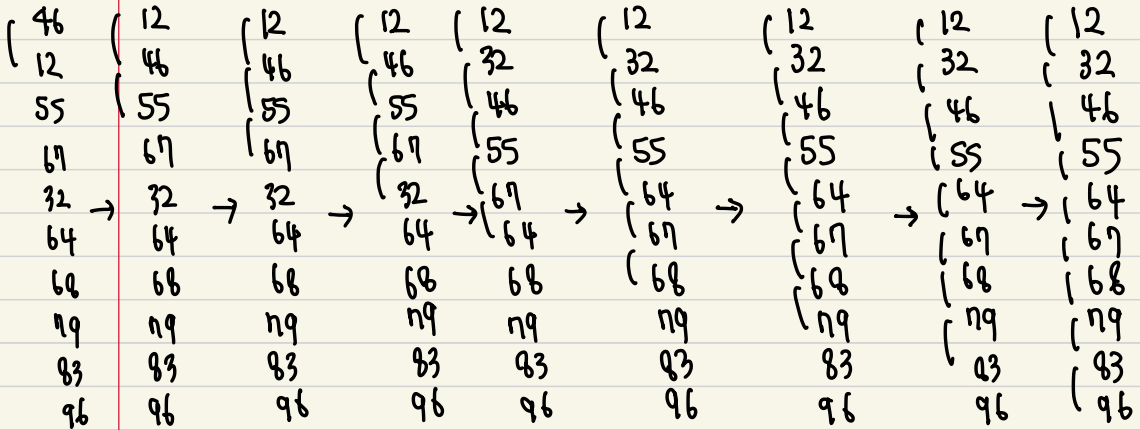 46 12 12 12 12 12 12 12 12
12 46 46 46 32 32 32 32 32
55 55 55 55 46 46 46 46 46
67 67 67 67 55 55 55 55 55
32 → 32 → 32 → 32 → 67 → 64 → 64 → 64 → 64
64 64 64 64 64 67 67 67 67
68 68 68 68 68 68 68 68 68
79 79 79 79 79 79 79 79 79
83 83 83 83 83 83 83 83 83
96 96 96 96 96 96 96 96 96